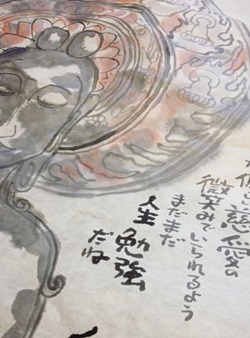 慈愛の
微笑みでいられるよう
まだまだ
人生勉強
だね